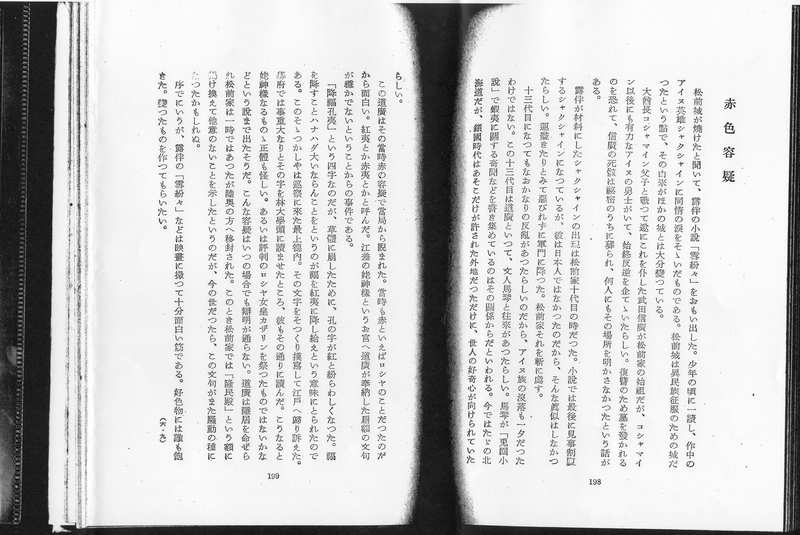 赤色容疑
松前城が燒けたと聞いて、露伴の小説「雪紛々」をおもい出した。少年の頃に一讀し、作中の
アイヌ英雄シャクシャインに同情の涙をそゝいだものである。松前城は異民族征服のための城だ
つたという點で、その由來がほかの城とは大分變つている。
大酋長コシャマイン父子と戰つて遂にこれを仆した武田信廣が松前家の始祖だが、コシャマイ
ン以後にも有力なアイヌの勇士がいて、始終反逆を企てゝいたらしい。復讐のため墓を發かれる
のを恐れて、信廣の死骸は秘密のうちに葬られ、何人にもその場所を明かさなかつたという話が
ある。
露伴が材料にしたシャクシャインの出現は松前家十代目の時だつた。小説では最後に見事割腹
するシャクシャインになつているが、彼は日本人ではなかつたのだから、そんな眞似はしなかつ
たらしい。運盡きたりとみて惡びれずに軍門に降つた。松前家それを斬に處す。
十三代目になつてもなおかなりの反亂があつたらしいのだから、アイヌ族の沒落も一夕だつた
わけではない。この十三代目は道廣といつて、文人馬琴と往來があつたらしい。馬琴が「兎園小
説」で蝦夷に關する奇聞などを書き集めているのはその關係からだといわれる。今ではたゞの北
海道だが、鎖國時代はあそこだけが許された外地だつただけに、世人の好奇心が向けられていた
198
らしい。
この道廣はその當時赤の容疑で當局から睨まれた。當時も赤といえばロシヤのことだつたのだ
から面白い。紅夷とか赤夷とか呼んだ。江差の姥神樣というお宮へ道廣が奉納した扁額の文句
が穩かでないということからの事件である。
「降福孔夷」という四字なのだが、草體に崩したために、孔の字が紅と紛らわしくなつた。福
を降すことハナハダ大いならんことをというのが福を紅夷に降し給えという意味にとられたので
ある。このそゝつかしやは巡察に來た最上德内。その文字をそつくり摸寫して江戶へ歸り訴えた。
幕府では事重大なりとその字を林大學頭に讀ませたところ、彼もその通りに讀んだ。こうなると
姥神樣なるものゝ正體も怪しい。あるいは評判のロシヤ女皇カザリンを祭つたものではないかな
どという説まで出たそうだ。こんな容疑はいつの場合でも辯明が通らない。道廣は隱居を命ぜら
れ松前家は一時ではあつたが陸奧の方へ移封された。このとき松前家では「隆民殿」という額に
掲げ換えて他意のないことを示したというのだが、今の世だつたら、この文句がまた騷動の種に
なつたかもしれぬ。
序でにいうが、露伴の「雪紛々」などは映畫に撮つて十分面白い筋である。好色物には誰も飽
きた。變つたものを作つてもらいたい。
199